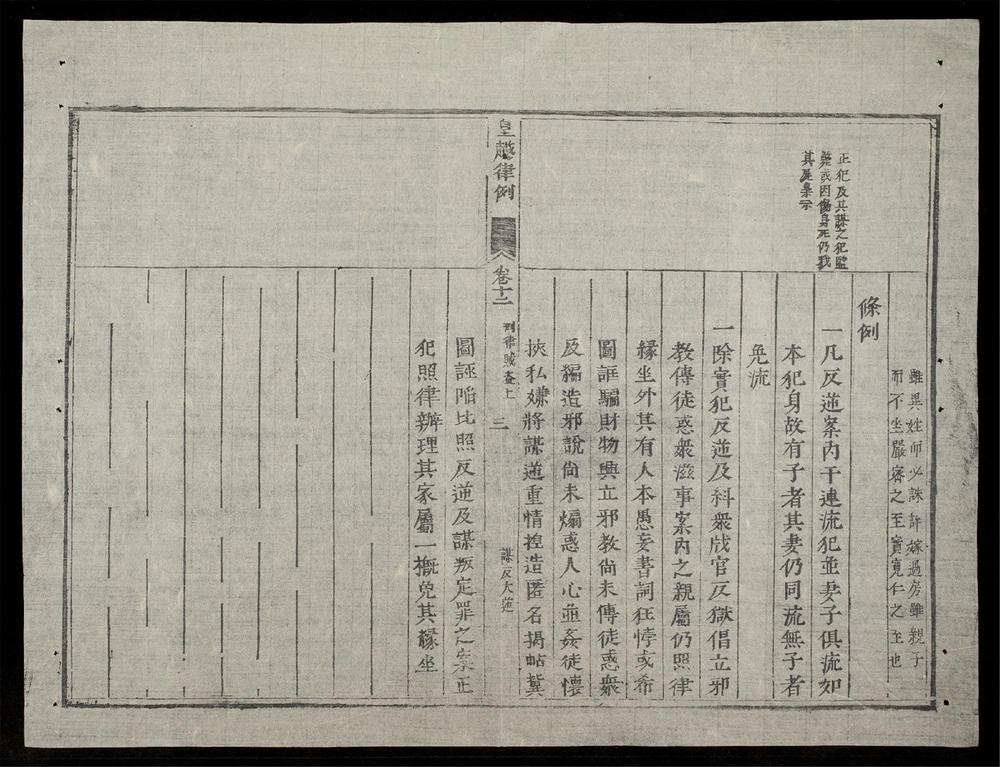 正犯及其謀之犯監
斃或因傷身死仍戮
其屍梟示
雖異姓而必誅許嫁過房雖親子
而不坐嚴審之至實寬仁之至也
條例
一凡反逆案內干連流犯並妻子俱流如
本犯身故有子者其妻仍同流無子者
免流
一除實犯反逆及糾衆戕官反獄倡立邪
教傳徒惑衆滋事案內之親屬仍照律
緣坐外其有人本愚妄書詞狂悖或希
圖誆騙財物興立邪教尚未傳徒惑衆
及編造邪說尚未煽惑人心並姦徒懷
挾私嫌將謀逆重情捏造匿名揭帖冀
皇越律例
卷十二
刑律賊盜上
三
謀反大逆
圖誣陷比照反逆及謀叛定罪之案正
犯照律辦理其家屬一概免其緣坐